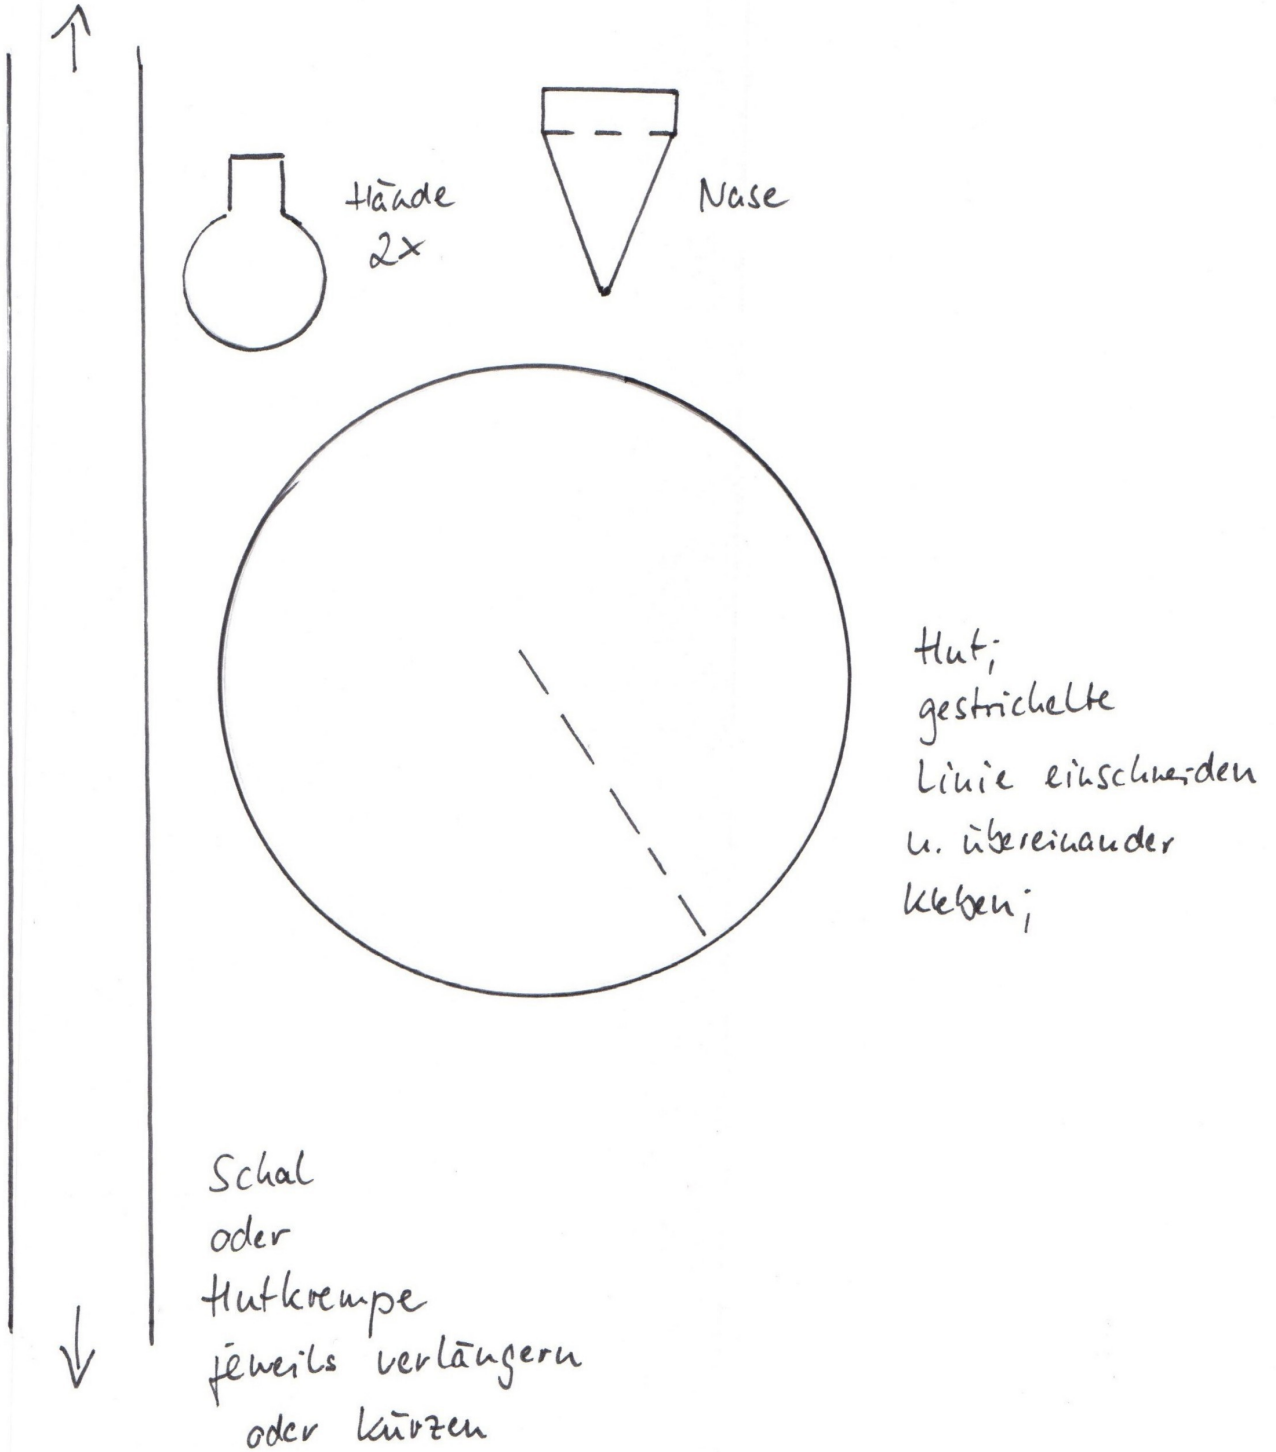 Hände
2x
Nase
Hut;
gestrichelte
Linie einschneiden
u. übereinander
kleben;
Schal
oder
Hutkrempe
jeweils verlängern
oder kürzen